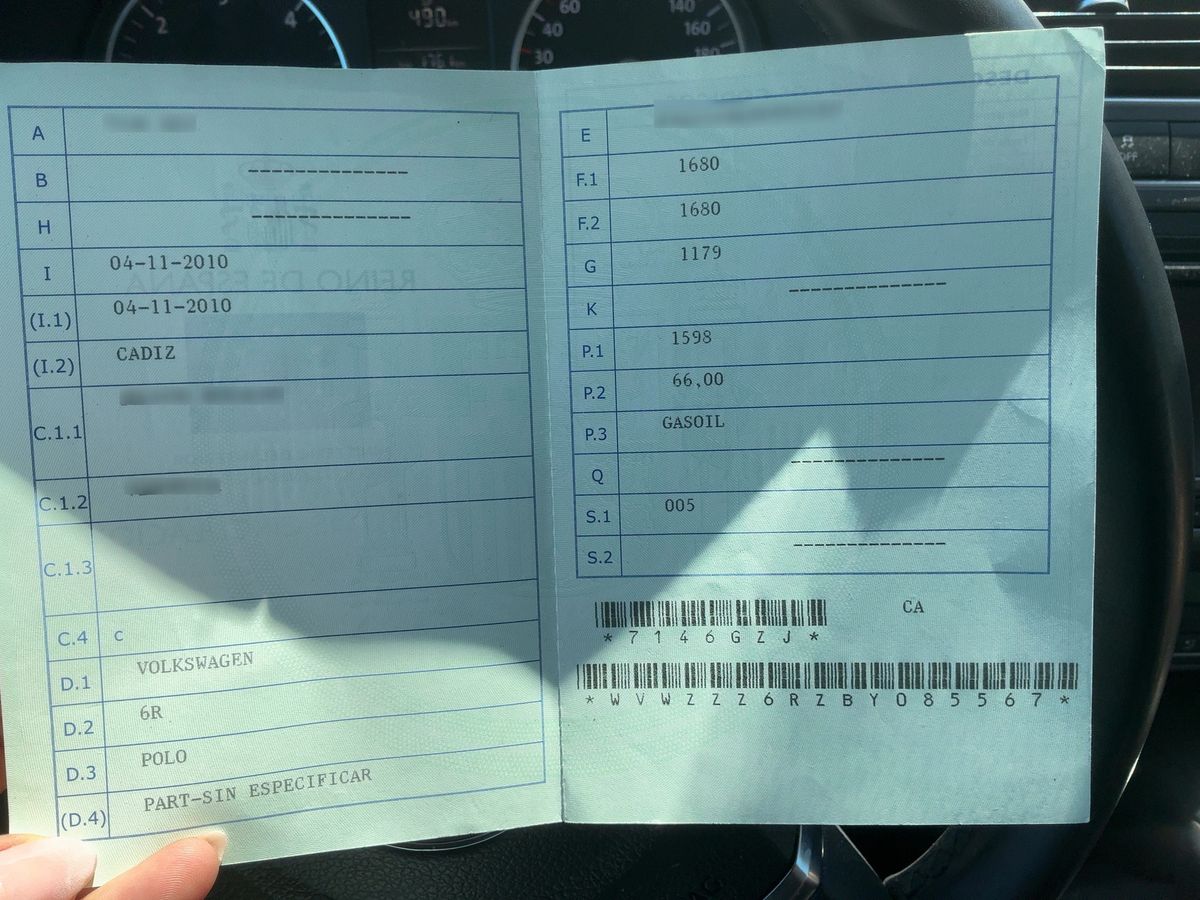 2
4
490
60
40
30
140
160
180
A
B ------------
H ------------
I 04-11-2010
(I.1) 04-11-2010
(I.2) CADIZ
C.1.1
C.1.2
C.1.3
C.4 c
D.1 VOLKSWAGEN
D.2 6R
D.3 POLO
(D.4) PART-SIN ESPECIFICAR
E
F.1 1680
F.2 1680
G 1179
K ------------
P.1 1598
P.2 66,00
P.3 GASOIL
Q ------------
S.1 005
S.2 ------------
CA
*7146GZJ*
*WVWZZZ6RZBY085567*
REINO DE ESPAÑA
OFF